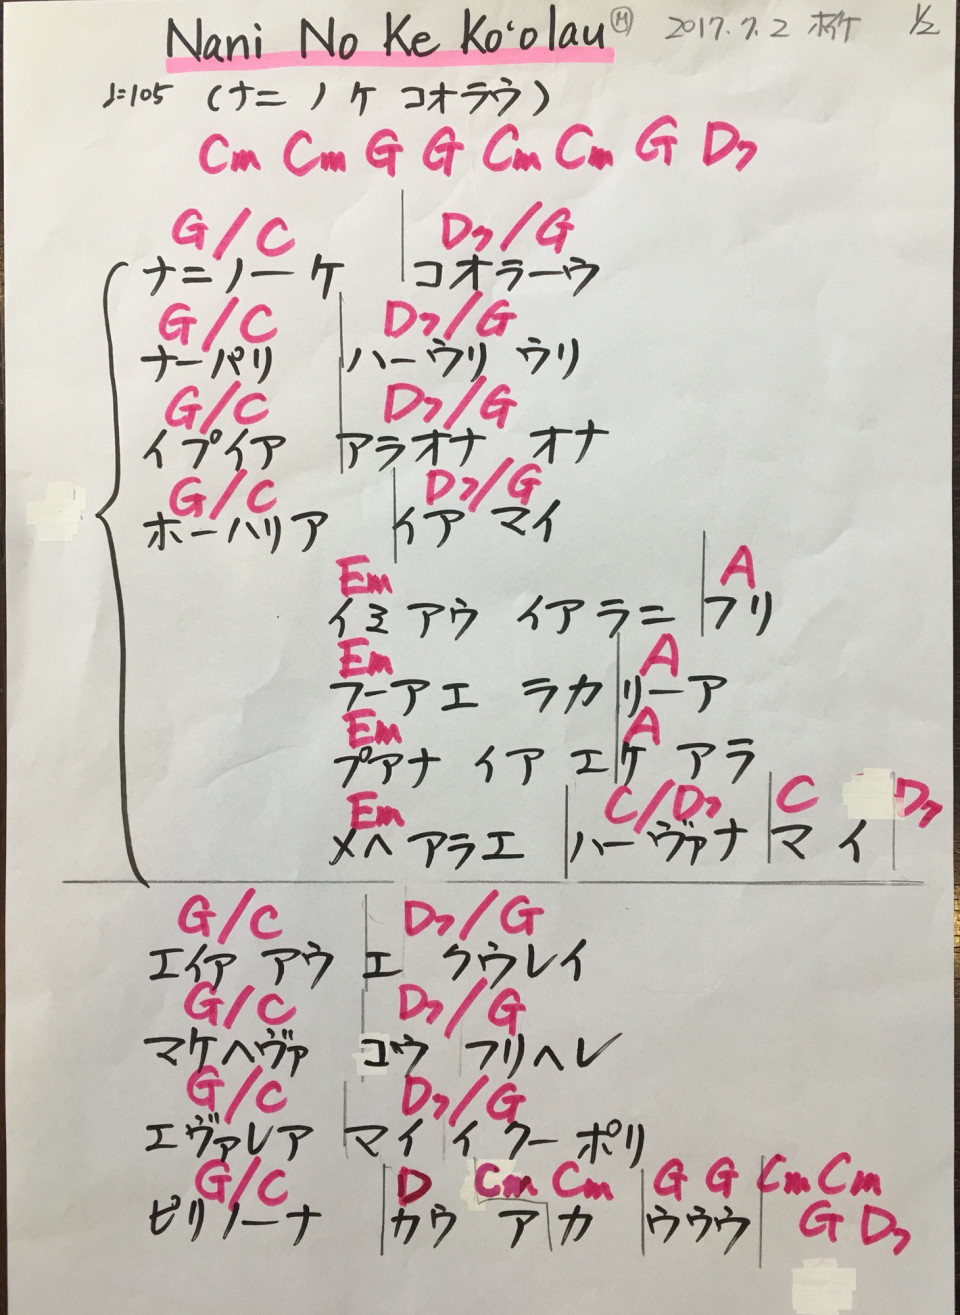 Nani No Ke Ko'olau Ⓜ 2017.7.2 1/2
♩=105 (ナニ ノ ケ コオラウ)
Cm Cm G G Cm Cm G D7
G/C D7/G
ナニノーケ コオラーウ
G/C D7/G
ナーパリ ハーウリ ウリ
G/C D7/G
イプイア アラオナ オナ
G/C D7/G
ホーハリア イア マイ
Em A
イミ アウ イア ラニ フリ
Em A
フーアエ ラカリーア
Em A
プアナ イア エケ アラ
Em C/D7 C D7
メヘ アラエ ハーヴァナ マ イ
G/C D7/G
エイア アウ エ クウレイ
G/C D7/G
マケヘヴァ コウ フリヘレ
G/C D7/G
エヴァレア マイ イ クーポリ
G/C D Cm Cm G G Cm Cm
ピリノーナ カウ ア カ ウウウ G D7